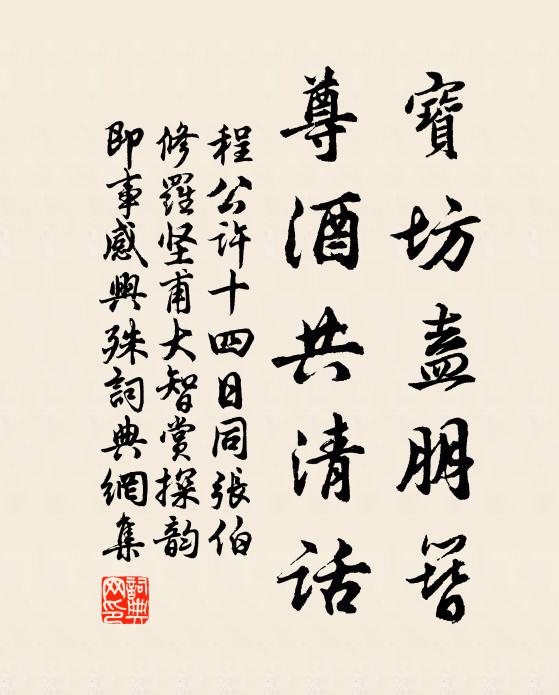 寶坊盍朋簪
尊酒共清話
程公許十四日同張伯
修羅坚甫大智賞探韵
即事感興殊詞典網集
詞典網印